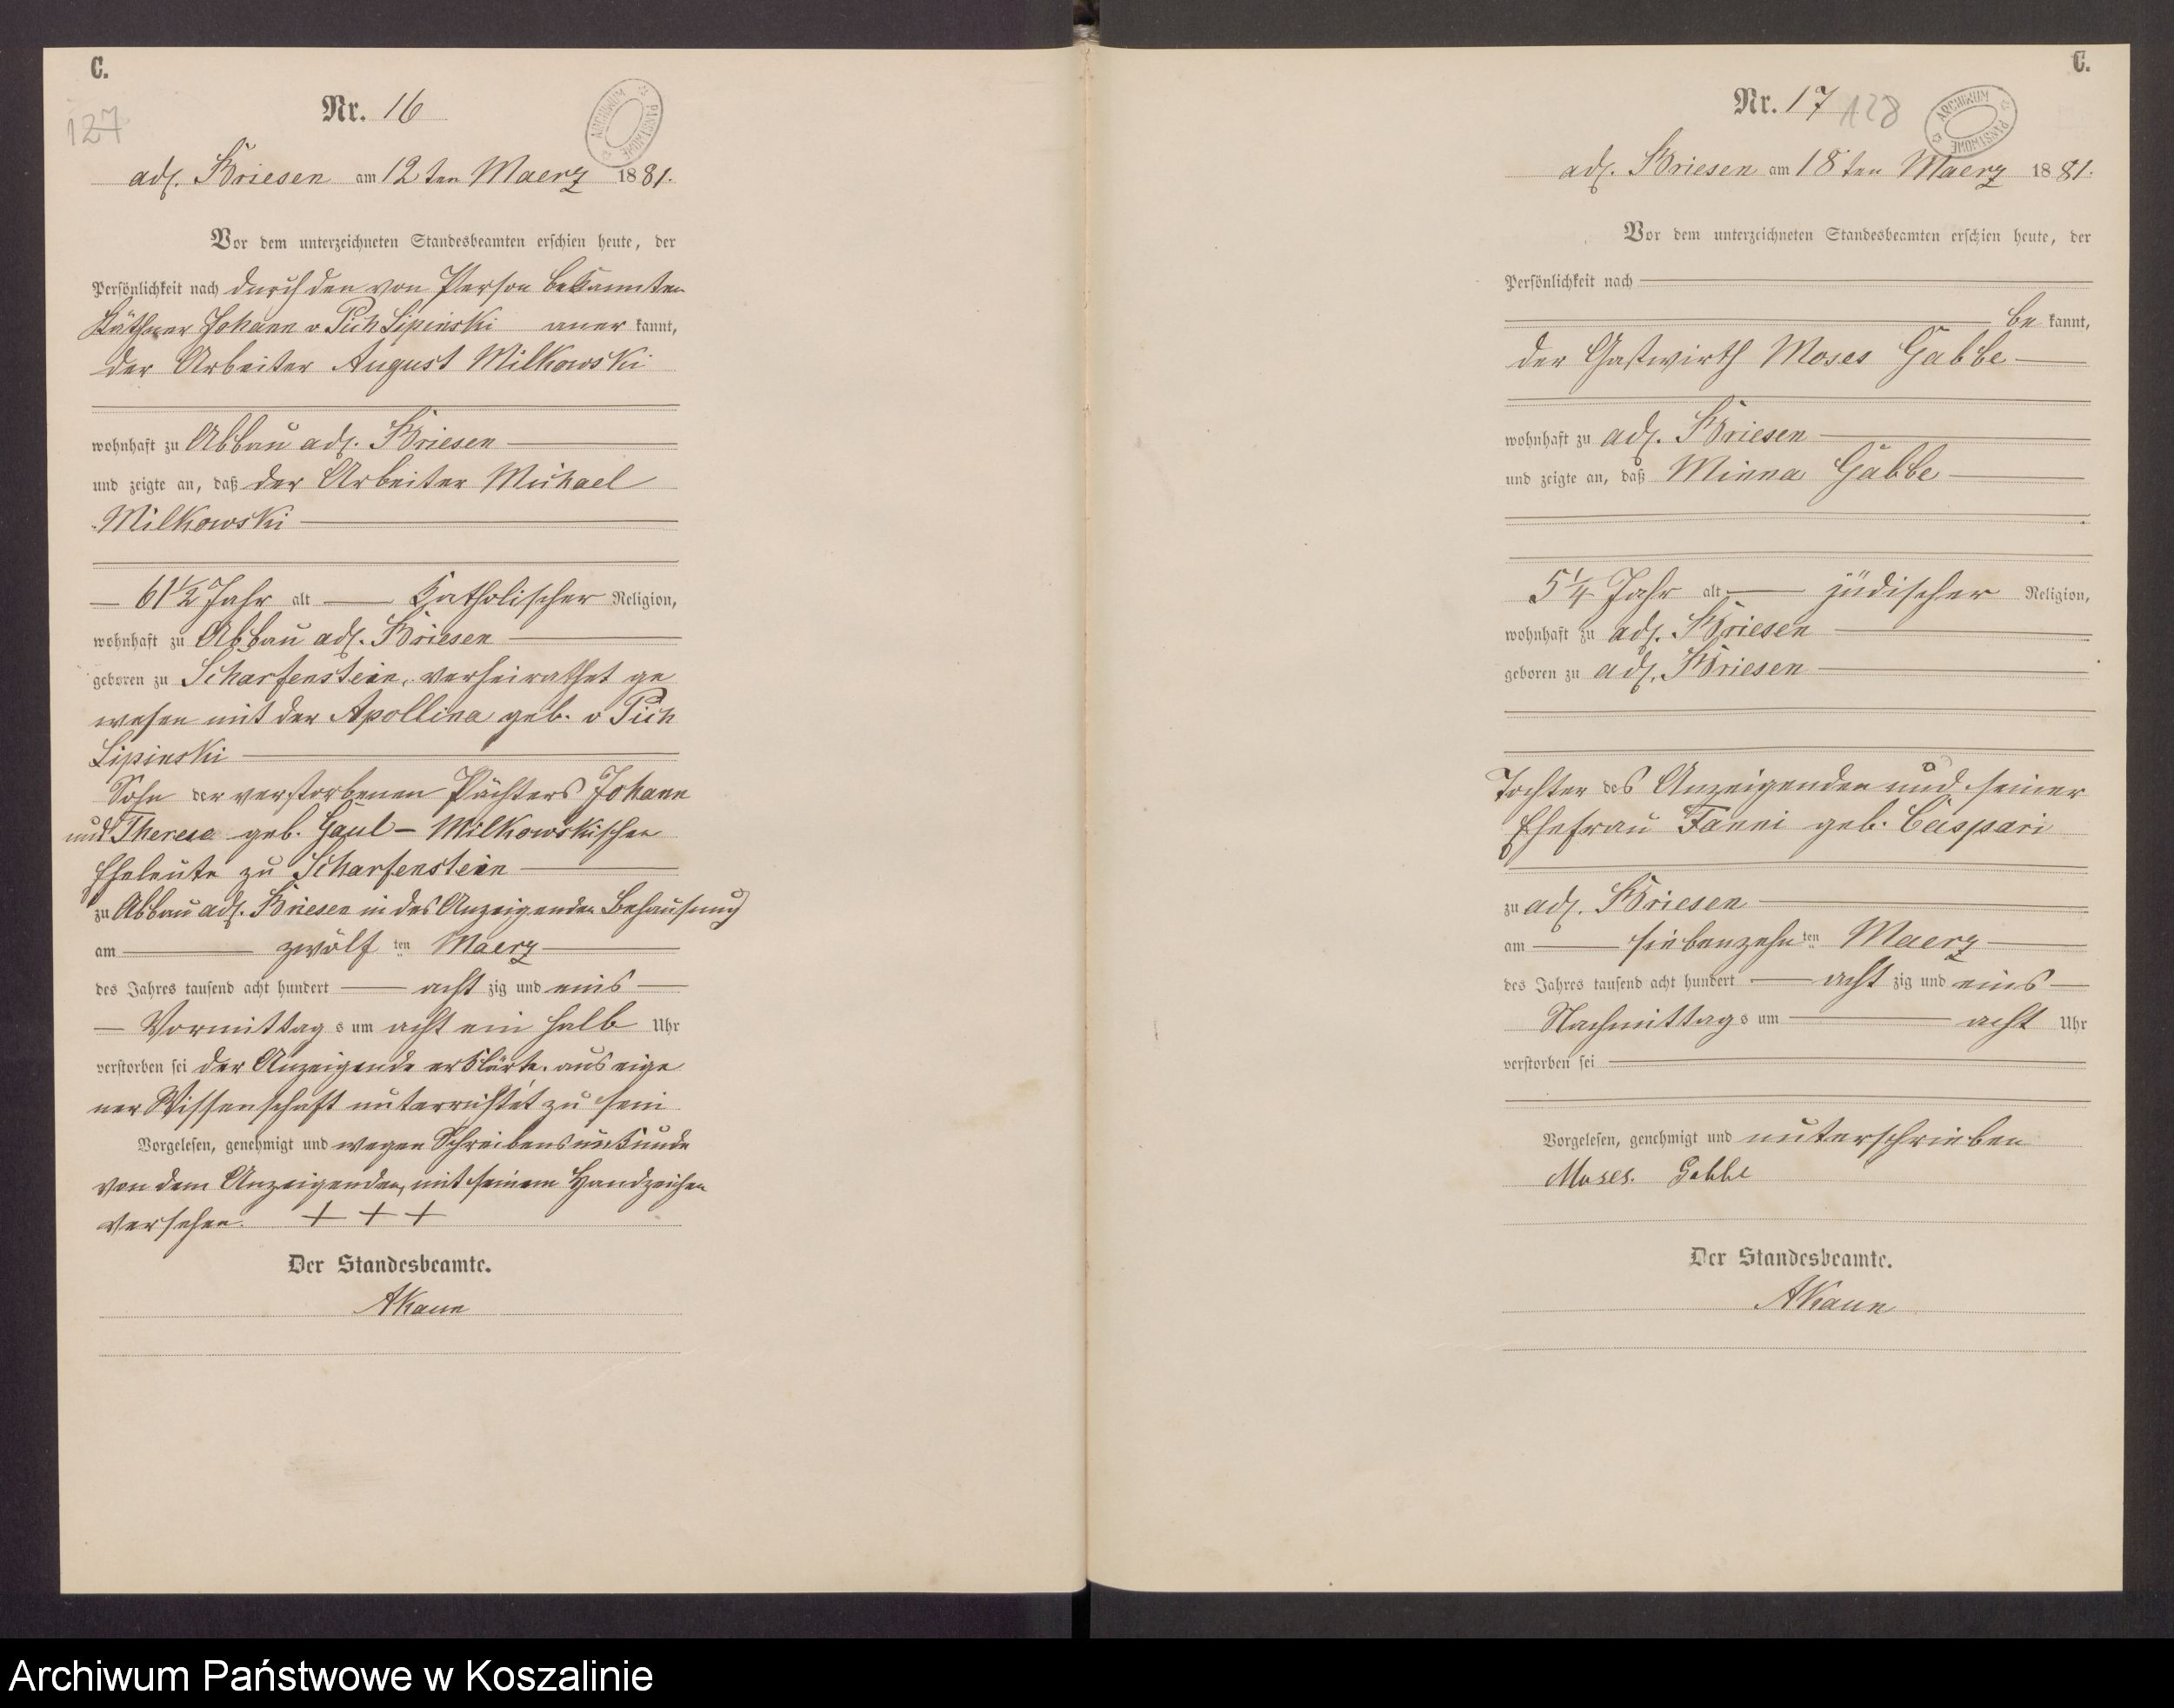 C.
127
Nr. 16
ARCHIWUM PAŃSTWOWE
adl. Briesen am 12ten Maerz 1881.
Vor dem unterzeichneten Standesbeamten erschien heute, der
Persönlichkeit nach durch den von Person bekannten
Käthner Johann v Pich Lipinski aner kannt,
der Arbeiter August Milkowski
wohnhaft zu Abbau adl. Briesen
und zeigte an, daß der Arbeiter Michael
Milkowski
61 1/2 Jahr alt Katholischer Religion,
wohnhaft zu Abbau adl. Briesen
geboren zu Scharfenstein, verheirathet ge
wesen mit der Apollina geb. v Pich
Lipinski
Sohn der verstorbenen Pächters Johann
und Therese geb. Gaul - Milkowskischen
Eheleute zu Scharfenstein
zu Abbau adl. Briesen in des Anzeigenden Behausung
am zwölf ten Maerz
des Jahres tausend acht hundert acht zig und eins
Vormittag s um acht ein halb Uhr
verstorben sei der Anzeigende erklärte, aus eige
ner Wissenschaft unterrichtet zu sein
Vorgelesen, genehmigt und wegen Schreibensunkunde
von dem Anzeigenden, mit seinem Handzeichen
versehen. + + +
Der Standesbeamte.
AKaun
C.
Nr. 17 128
ARCHIWUM PAŃSTWOWE
adl. Briesen am 18ten Maerz 1881.
Vor dem unterzeichneten Standesbeamten erschien heute, der
Persönlichkeit nach
be kannt,
der Gastwirth Moses Gabbe
wohnhaft zu adl. Briesen
und zeigte an, daß Minna Gabbe
5 1/4 Jahr alt jüdischer Religion,
wohnhaft zu adl. Briesen
geboren zu adl. Briesen
Tochter des Anzeigenden und seiner
Ehefrau Fanni geb. Caspari
zu adl. Briesen
am siebenzehn ten Maerz
des Jahres tausend acht hundert acht zig und eins
Nachmittag s um acht Uhr
verstorben sei
Vorgelesen, genehmigt und unterschrieben
Moses. Gabbe
Der Standesbeamte.
AKaun
Archiwum Państwowe w Koszalinie